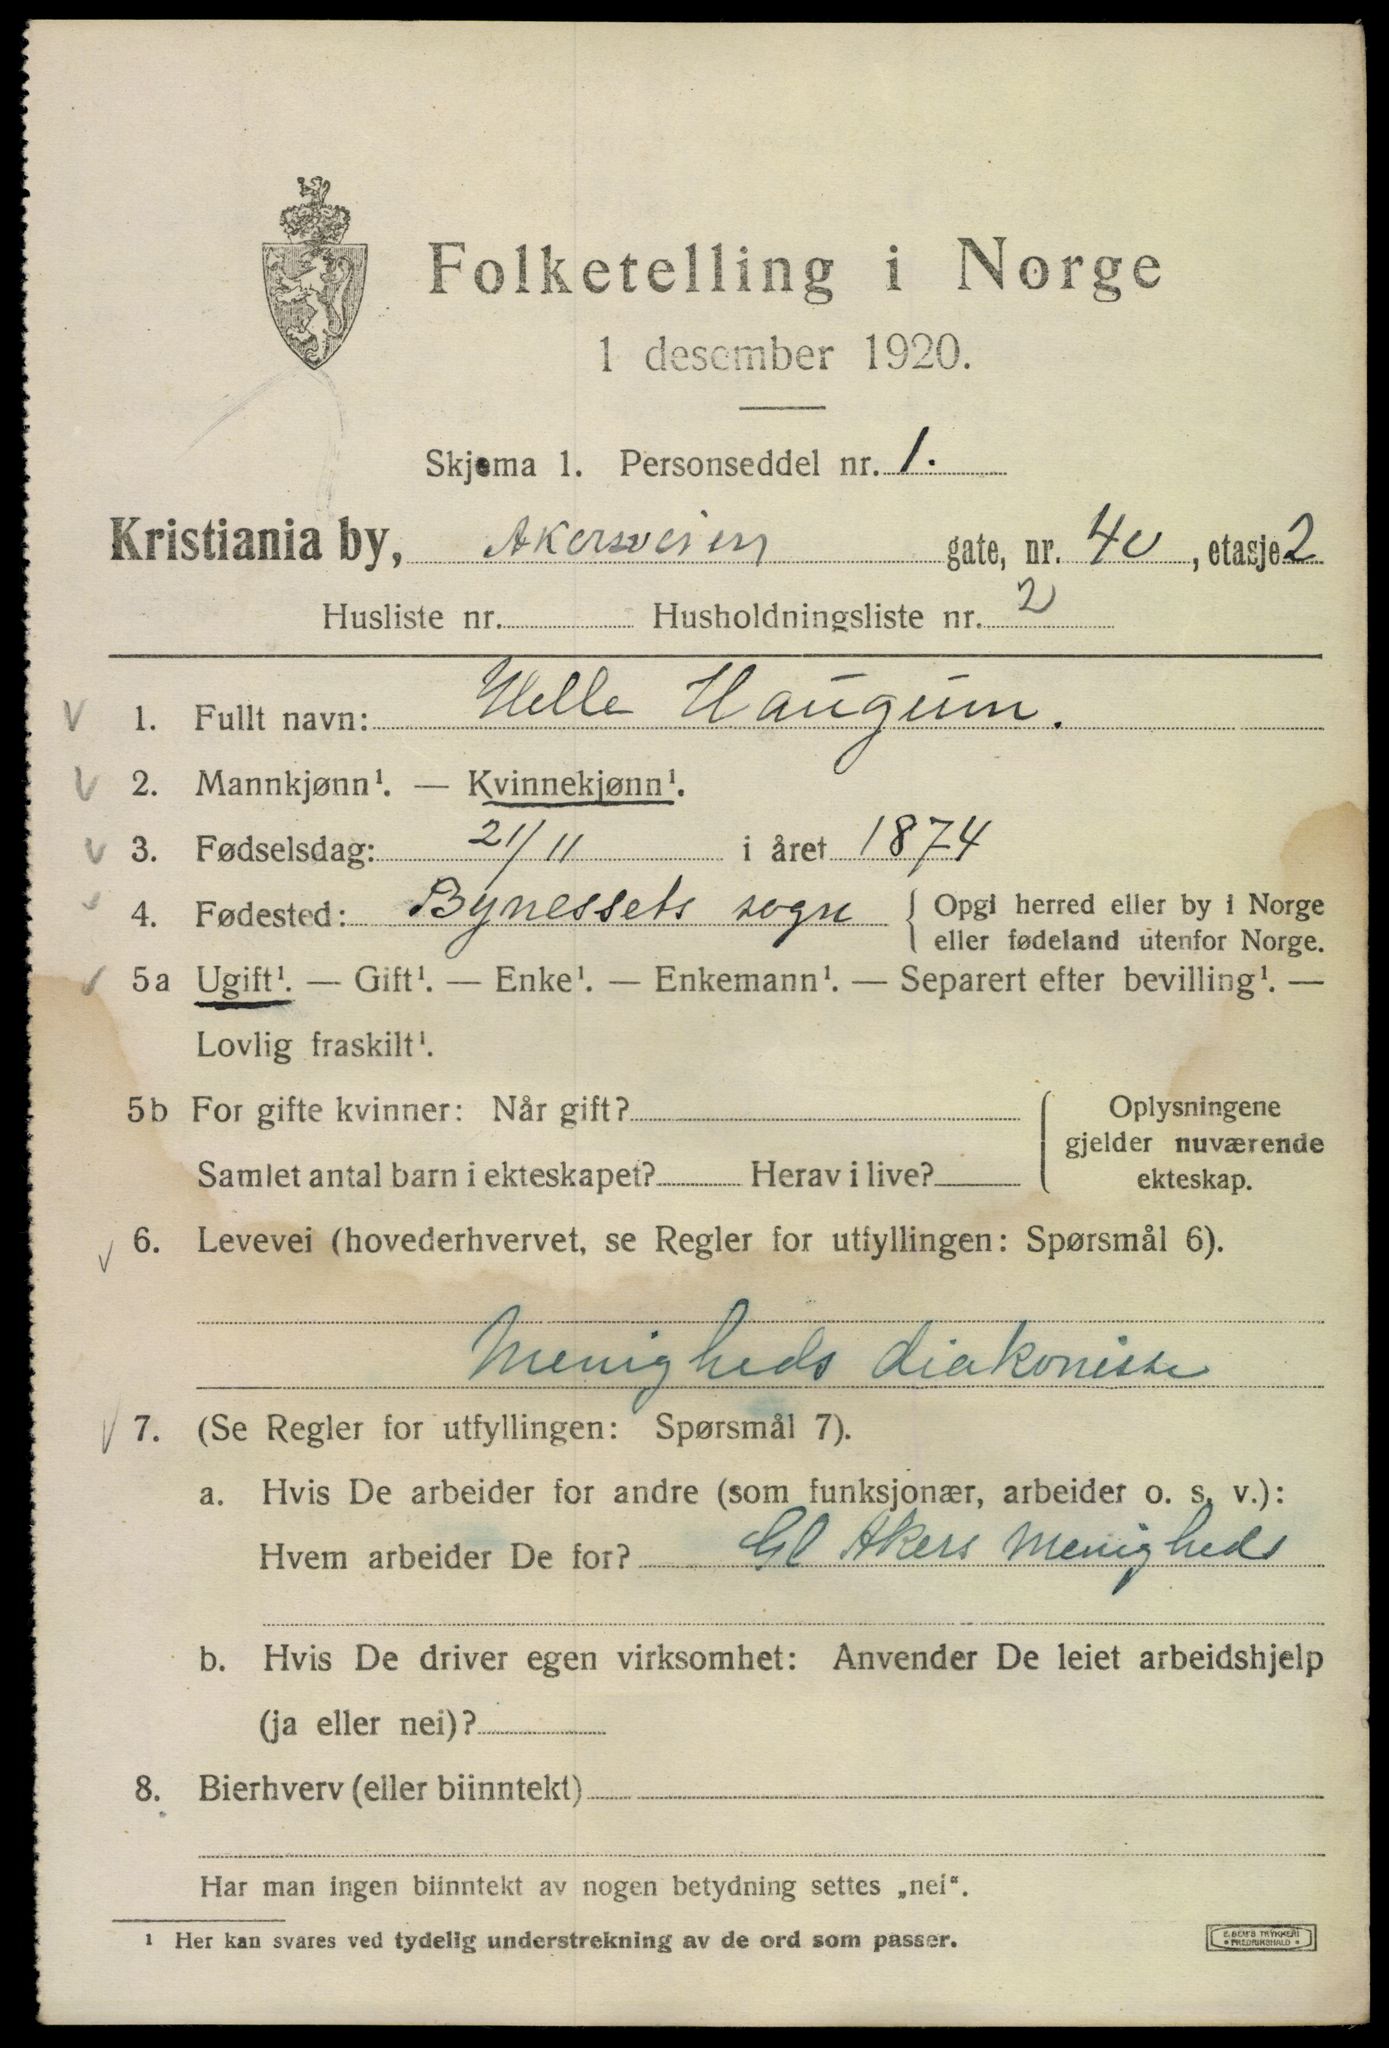 Folketelling i Norge
1 desember 1920.
Skjema 1. Personseddel nr. 1.
Kristiania by, Akersveien gate, nr. 40, etasje 2
Husliste nr. Husholdningsliste nr. 2
1. Fullt navn: Helle Haugum.
2. Mannkjønn¹. — Kvinnekjønn¹.
3. Fødselsdag: 21/11 i året 1874
4. Fødested: Bynessets sogn { Opgi herred eller by i Norge
eller fødeland utenfor Norge.
5a Ugift¹. — Gift¹. — Enke¹. — Enkemann¹. — Separert efter bevilling¹. —
Lovlig fraskilt¹.
5b For gifte kvinner: Når gift? { Oplysningene
gjelder nuværende
Samlet antal barn i ekteskapet? Herav i live? ekteskap.
6. Levevei (hovederhvervet, se Regler for utfyllingen: Spørsmål 6).
Menigheds diakonisse
7. (Se Regler for utfyllingen: Spørsmål 7).
a. Hvis De arbeider for andre (som funksjonær, arbeider o. s. v.):
Hvem arbeider De for? Gl Akers Menigheds
b. Hvis De driver egen virksomhet: Anvender De leiet arbeidshjelp
(ja eller nei)?
8. Bierhverv (eller biinntekt)
Har man ingen biinntekt av nogen betydning settes „nei“.
¹ Her kan svares ved tydelig understrekning av de ord som passer.
E. SEM'S TRYKKERI
• FREDRIKSHALD •